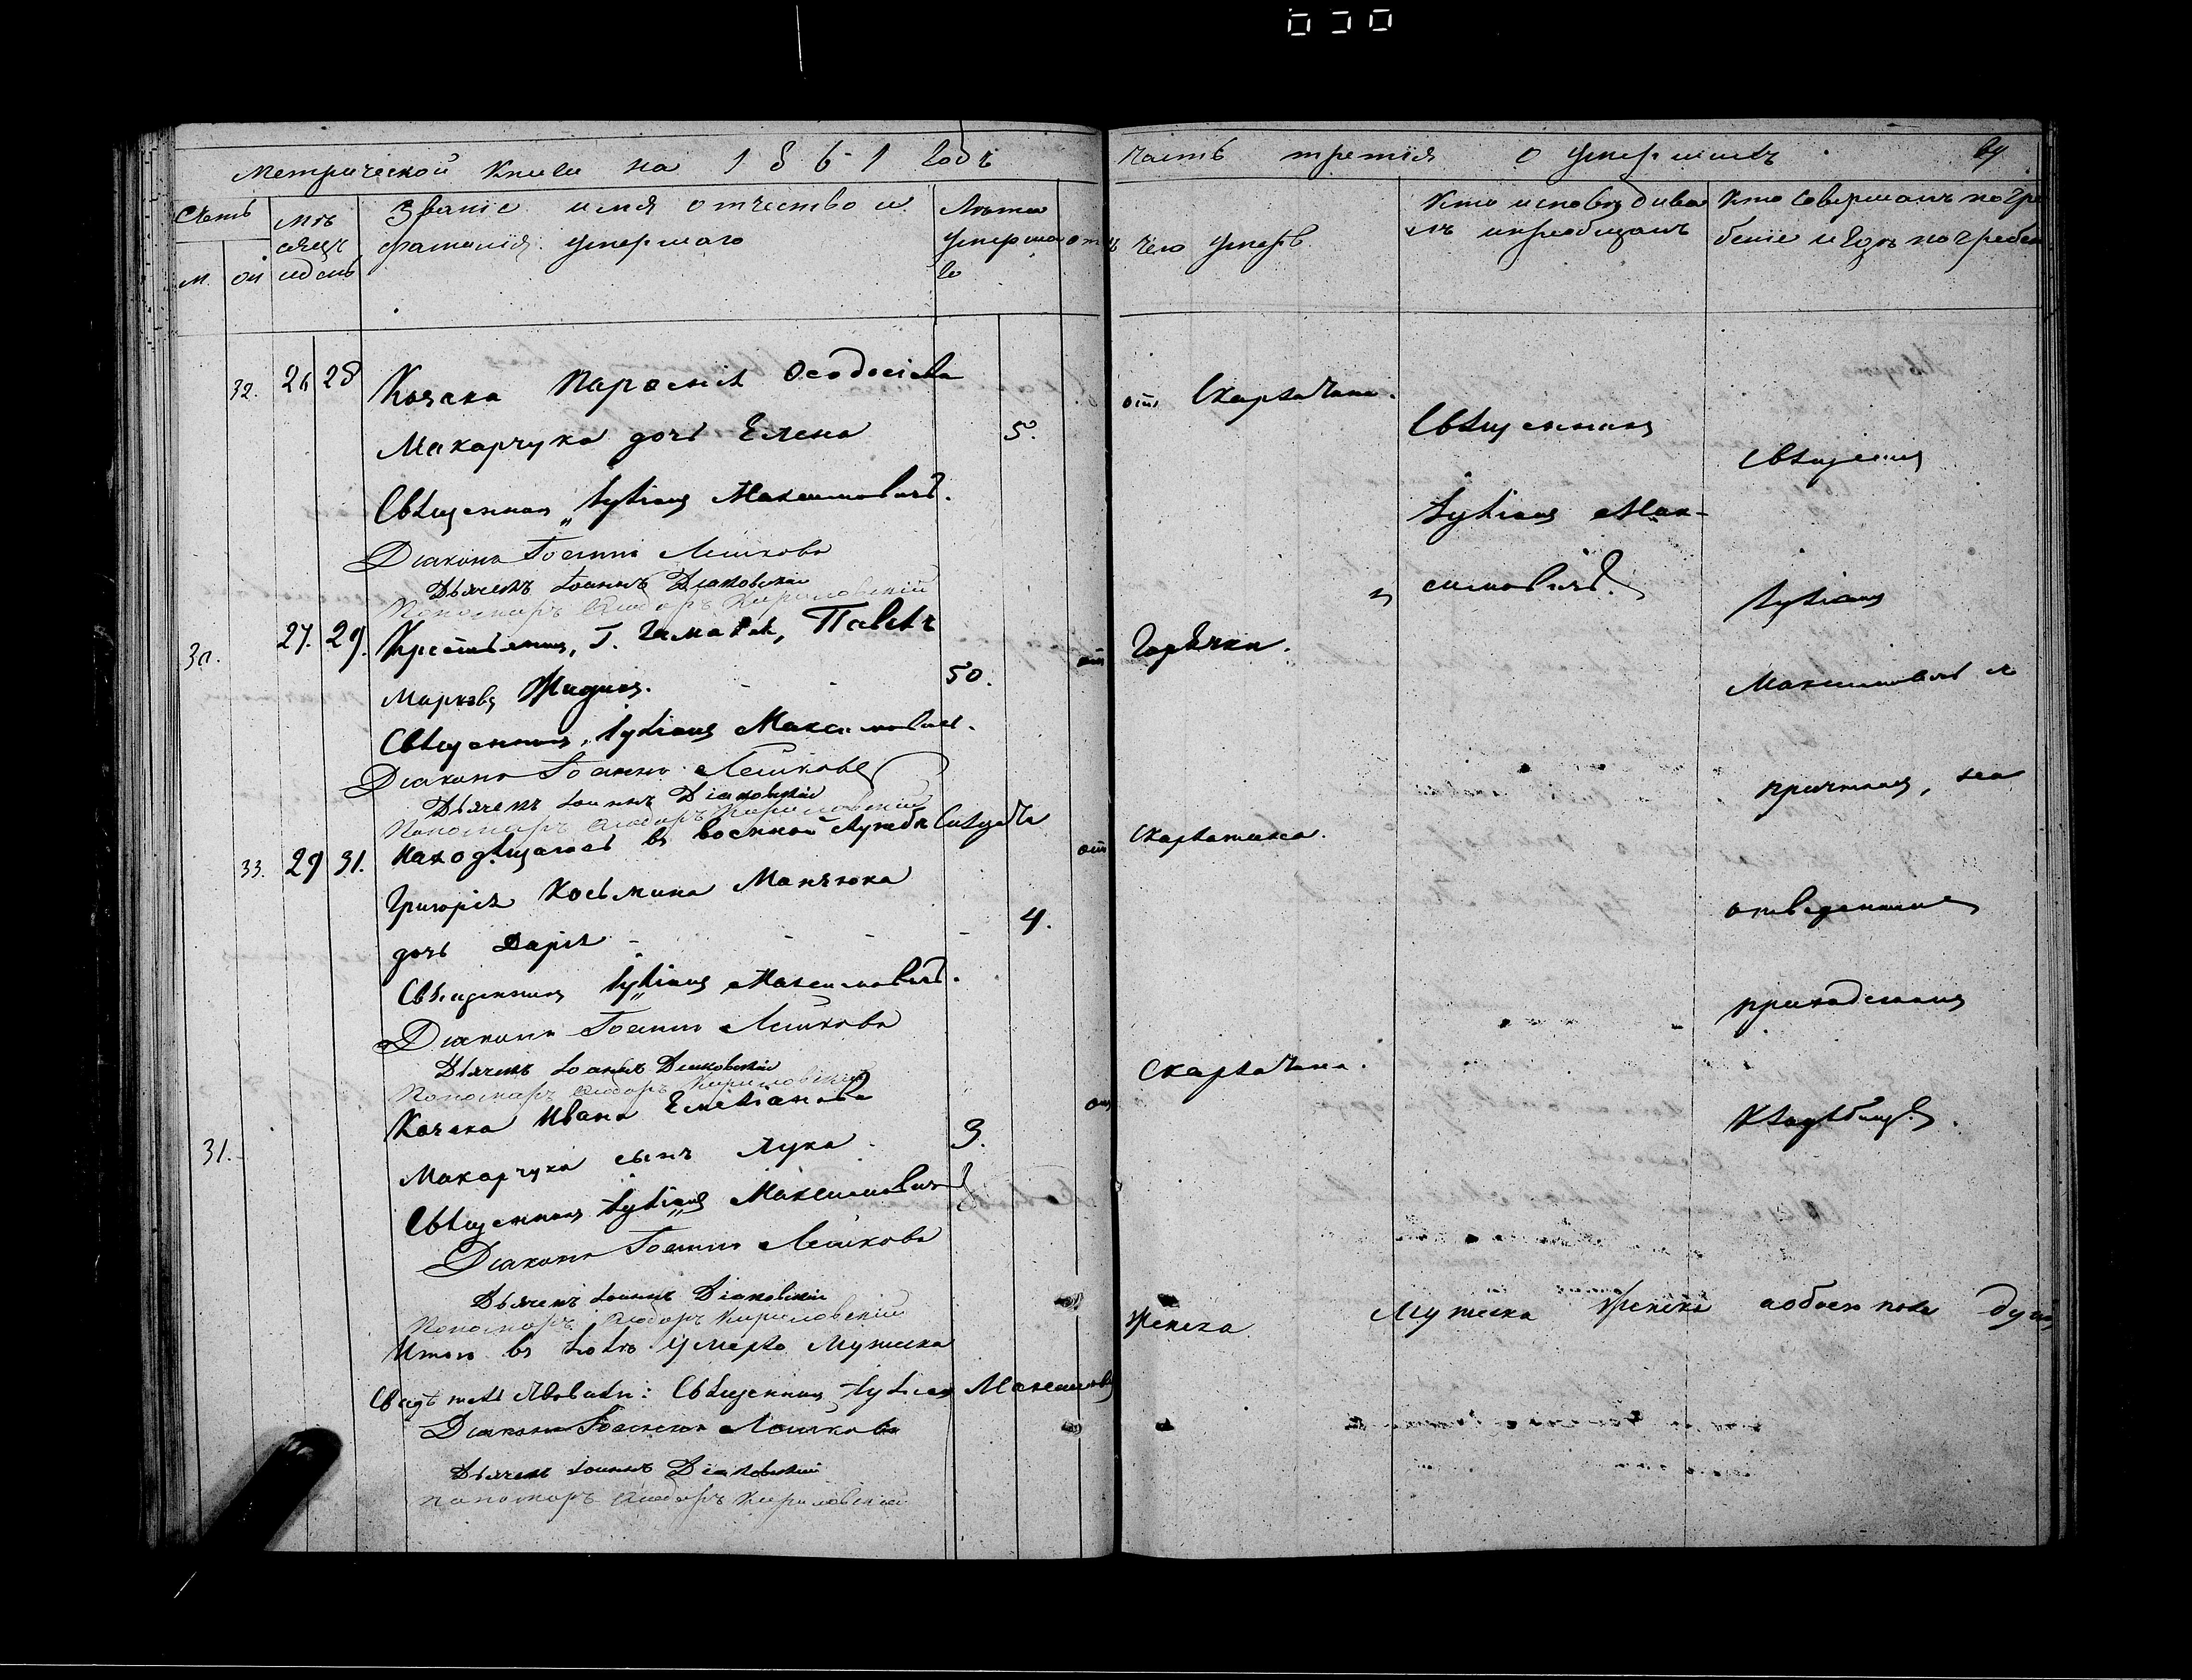 Метрической Книги на 1861 годъ
Часть третія о умершихъ
Счетъ
М.
Мѣсяцъ и день
Званіе имя отчество и
фамилія умершаго
Лѣта
умерша
го
отъ чего умеръ
Кто исповѣдива
лъ и пріобщалъ
Кто совершалъ погре
беніе и гдѣ погребен
32. 26 28
Козака Пароенія Ѳеодосіева
Макарчука дочь Елена
5.
отъ Скарлатина.
Священникъ Лукіанъ Максимовичъ.
Діаконъ Іоаннъ Лешковъ
Дьячекъ Іоаннъ Діаковскій
Пономарь Кириловскій
Священникъ
Лукіанъ Мак-
симовичъ.
30. 27. 29.
Крестьянинъ, Г. Павелъ
Марковъ
50.
отъ Горячки.
Священникъ, Лукіанъ Максимовичъ.
Діаконъ Іоаннъ Лешковъ
Дьячекъ Іоаннъ Діаковскій
Пономарь Кириловскій
33. 29 31.
Находящагося въ военной службѣ
Григорія Косьмина
дочь Дарія
4.
отъ Скарлатина.
Священникъ Лукіанъ Максимовичъ.
Діаконъ Іоаннъ Лешковъ
Дьячекъ Іоаннъ Діаковскій
Пономарь Кириловскій
31.
Козака Ивана Емеліанова
Макарчука сынъ Лука
3.
отъ Скарлатина.
Священникъ Лукіанъ Максимовичъ
Діаконъ Іоаннъ Лешковъ
Дьячекъ Іоаннъ Діаковскій
Пономарь Кириловскій
Священникъ
Лукіанъ
Максимовичъ с
причтомъ, на
отведенномъ
приходскомъ
кладбищѣ.
Итого въ умерло мужеска
женска мужеска женска обоего пола душъ
Священникъ Лукіанъ Максимов
Діаконъ Іоаннъ Лешковъ
Дьячекъ Іоаннъ Діаковскій
пономарь Кириловскій